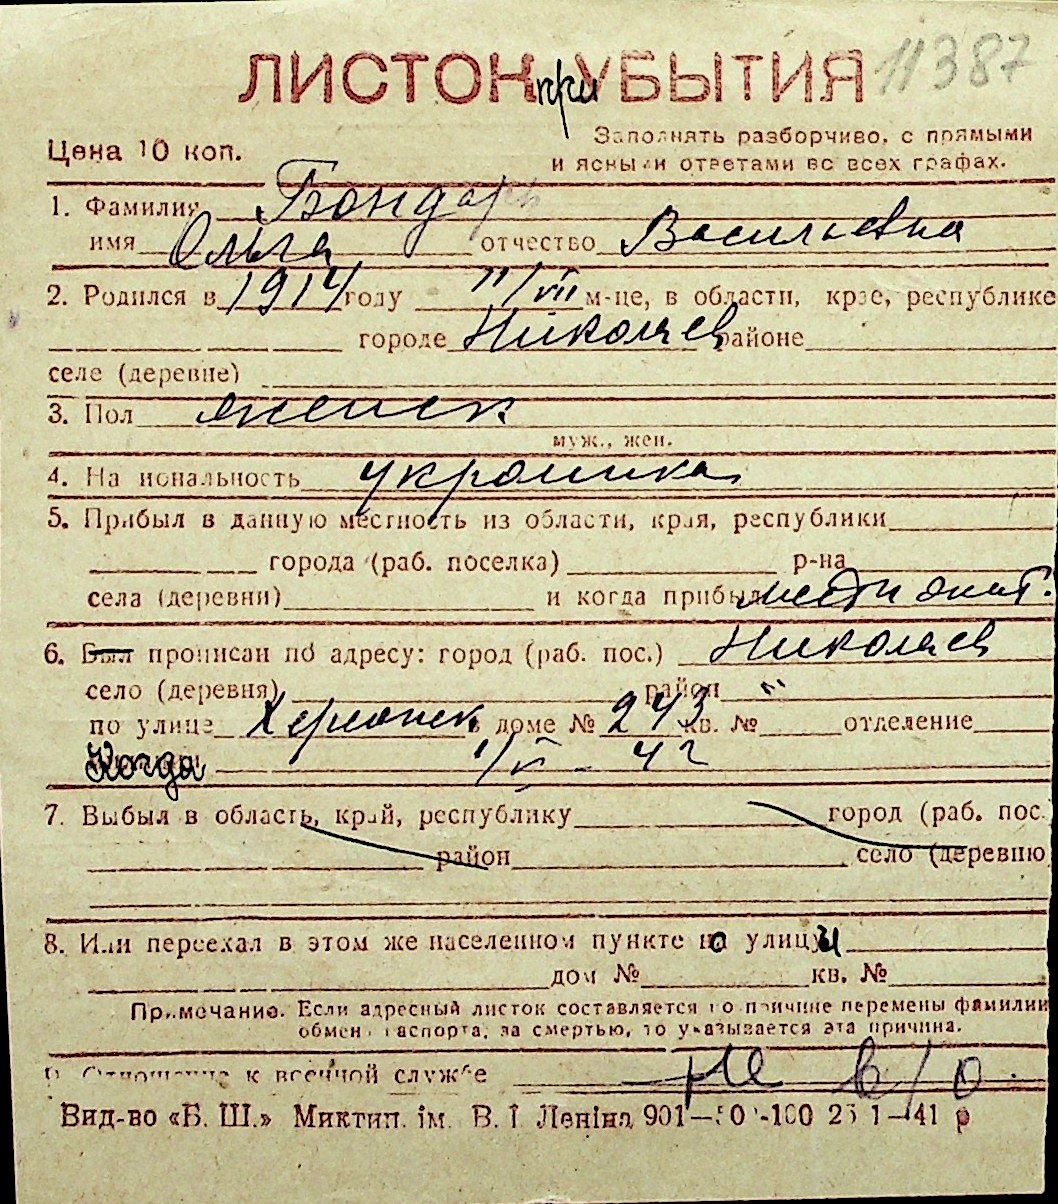 11387
ЛИСТОК при УБЫТИЯ
Цена 10 коп.
Заполнять разборчиво, с прямыми
и ясными ответами во всех графах.
1. Фамилия Бондарь
имя Ольга отчество Васильевна
2. Родился в 1914 году 11/VII м-це, в области, крае, республике
городе Николаев районе
селе (деревне)
3. Пол женск
муж., жен.
4. Национальность украинка
5. Прибыл в данную местность из области, края, республики
города (раб. поселка) р-на
села (деревни) и когда прибыл
6. Был прописан по адресу: город (раб. пос.) Николаев
село (деревня) район "
по улице Херсонск доме № 243 кв. № отделение
Когда 1/V - 42
7. Выбыл в область, край, республику город (раб. пос.
район село (деревню
8. Или переехал в этом же населенном пункте на улицу
дом № кв. №
Примечание. Если адресный листок составляется по причине перемены фамилии
обмена паспорта, за смертью, то указывается эта причина.
9. Отношение к военной службе не в/о
Вид-во «Б. Ш.» Миктип. ім. В. І Леніна 901—50 -100 25 1—41 р